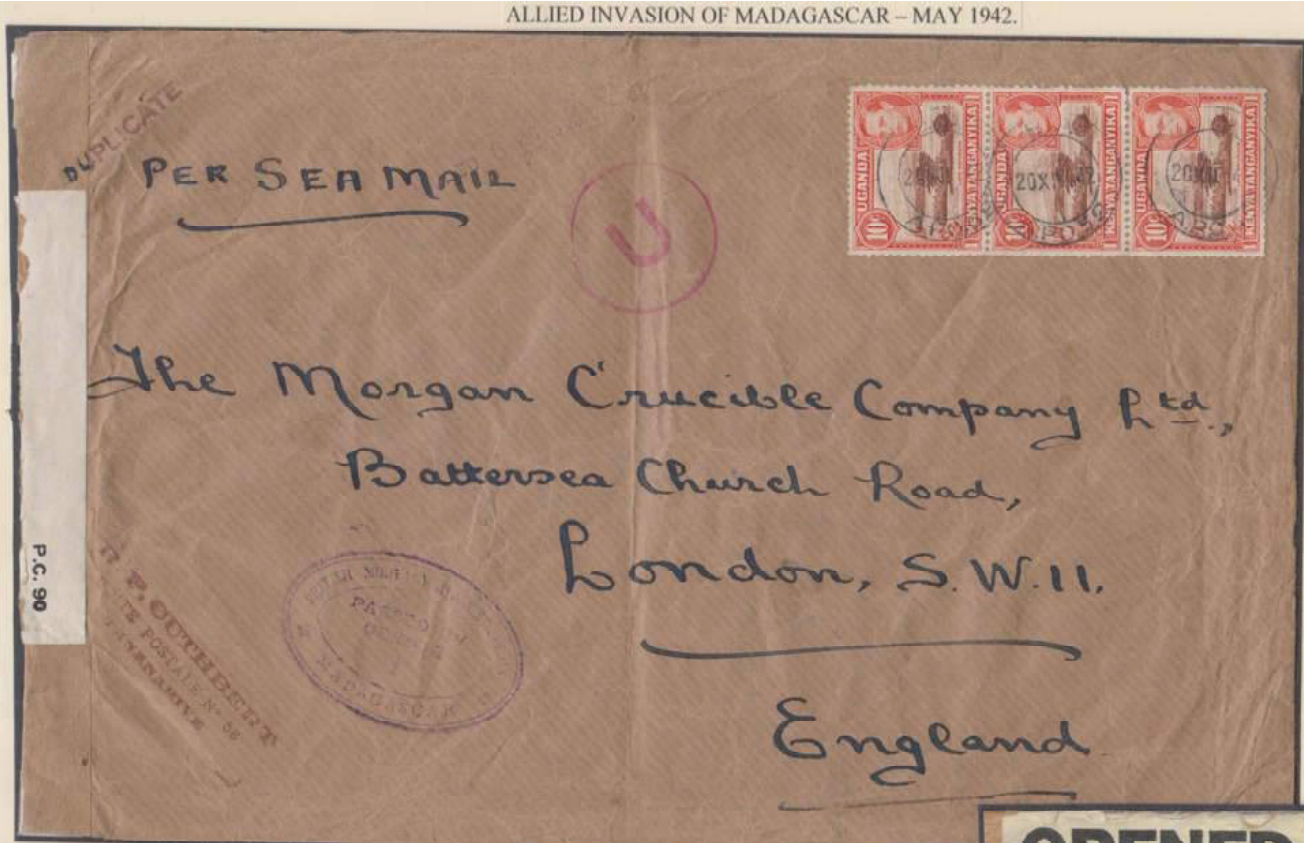 ALLIED INVASION OF MADAGASCAR – MAY 1942.
DUPLICATE
PER SEA MAIL
U
UGANDA
KENYA TANGANYIKA
10
UGANDA
KENYA TANGANYIKA
10
UGANDA
KENYA TANGANYIKA
10
The Morgan Crucible Company Ltd.,
Battersea Church Road,
London, S.W.11.
England
P.C. 90
P. CUTHBERT
POSTALE No 58
MADAGASCAR
OPENED